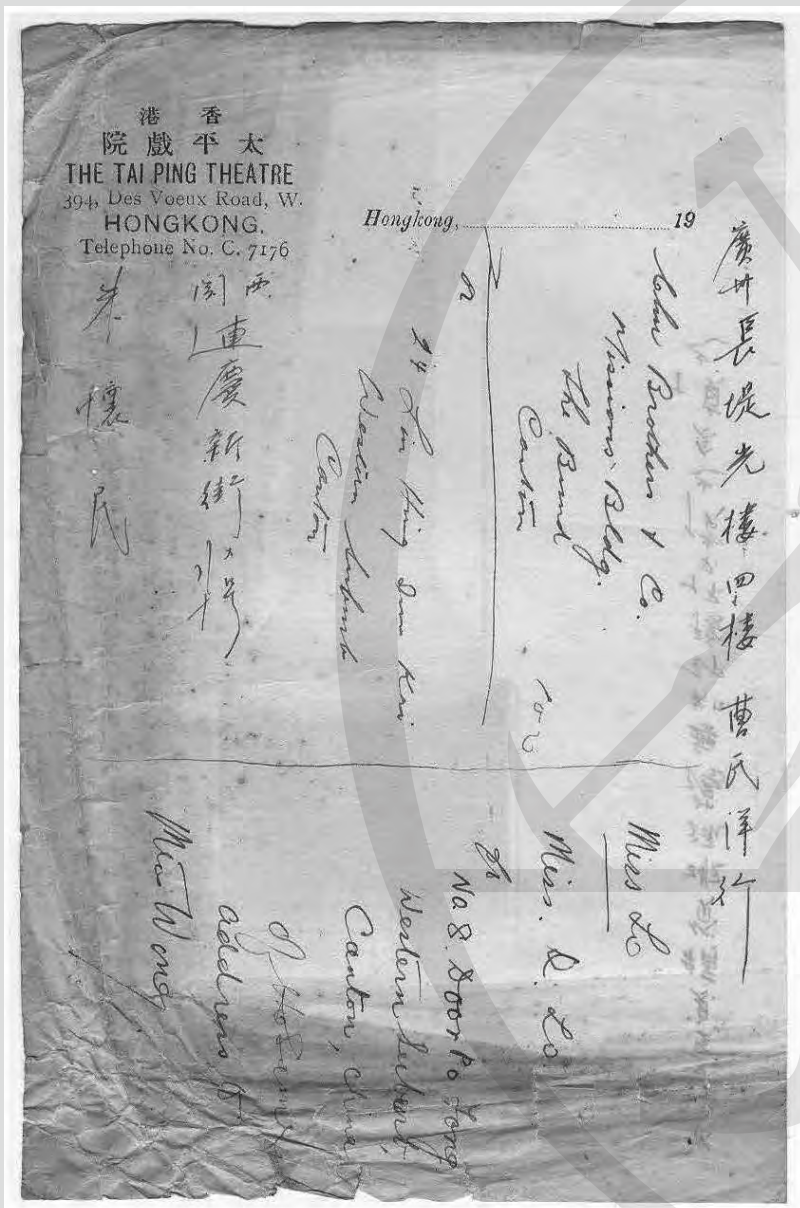 香港
太平戲院
THE TAI PING THEATRE
394, Des Voeux Road, W.
HONGKONG.
Telephone No. C. 7176
Hongkong, 19
廣州長堤光樓四樓曹氏洋行
Brothers & Co.
Missions Bldg.
The Bund
Canton
24 Lin Hing Sun Kai
Western Suburb
Canton
西關連慶新街
朱懷民
Miss Lo
Miss. Q. Lo.
No 8. Door Po Tong
Western Suburb,
Canton, China,
address
Miss Wong